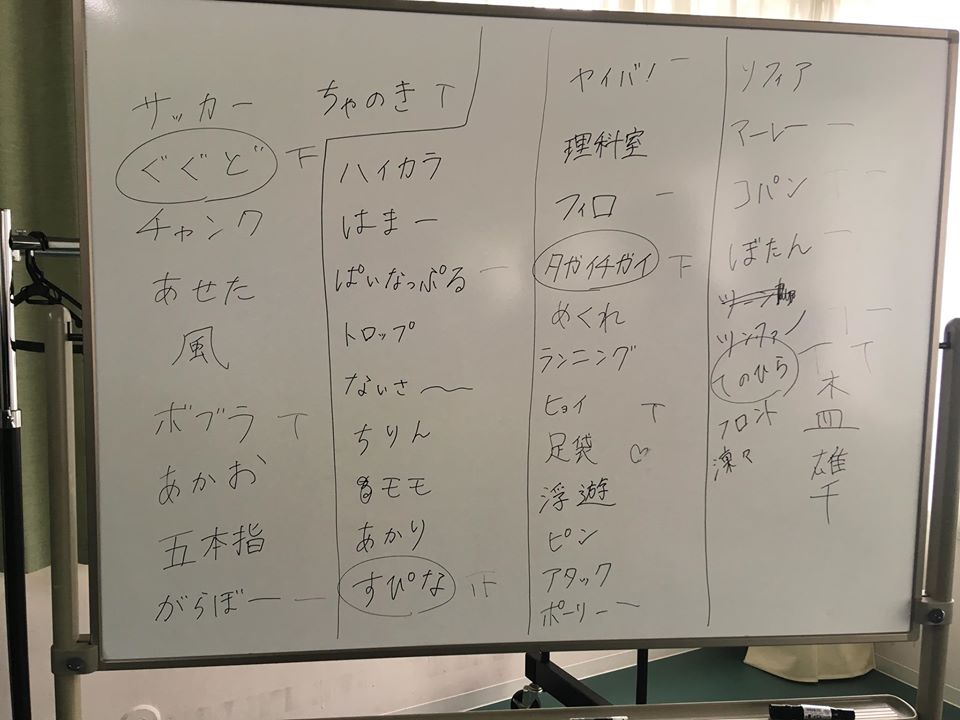 サッカー
ぐぐど
チャンク
あせた
風
ボブラ
あかお
五本指
がらぼー
ちゃのき
ハイカラ
はまー
ぱいなっぷる
トロップ
ないさ〜
ちりん
モモ
あかり
すぴな
ヤイバ!
理科室
フィロ
タガイチガイ
めくれ
ランニング
ヒョイ
足袋♡
浮遊
ピン
アタック
ポーリー
ソフィア
マーレー
コパン
ぼたん
ツンファン
てのひら
フロント
凍々
木
皿
雄
千